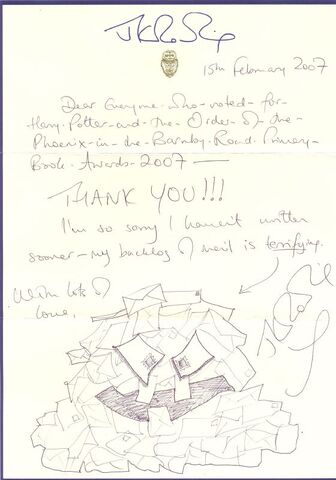 JK Rowling
15th February 2007
Dear Everyone-who-voted-for-
Harry-Potter-and-the-Order-of-the-
Phoenix-in-the-Barnby-Road-Primary-
Book-Awards-2007 —
THANK YOU!!!
I'm so sorry I haven't written
sooner – my backlog of mail is terrifying.
With lots of
love,
JK Rowling